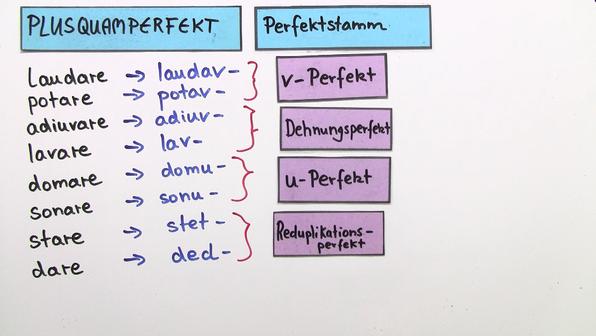 PLUSQUAMPERFEKT
Perfektstamm
laudare → laudav-
potare → potav-
v-Perfekt
adiuvare → adiuv-
lavare → lav-
Dehnungsperfekt
domare → domu-
sonare → sonu-
u-Perfekt
stare → stet-
dare → ded-
Reduplikations-
perfekt